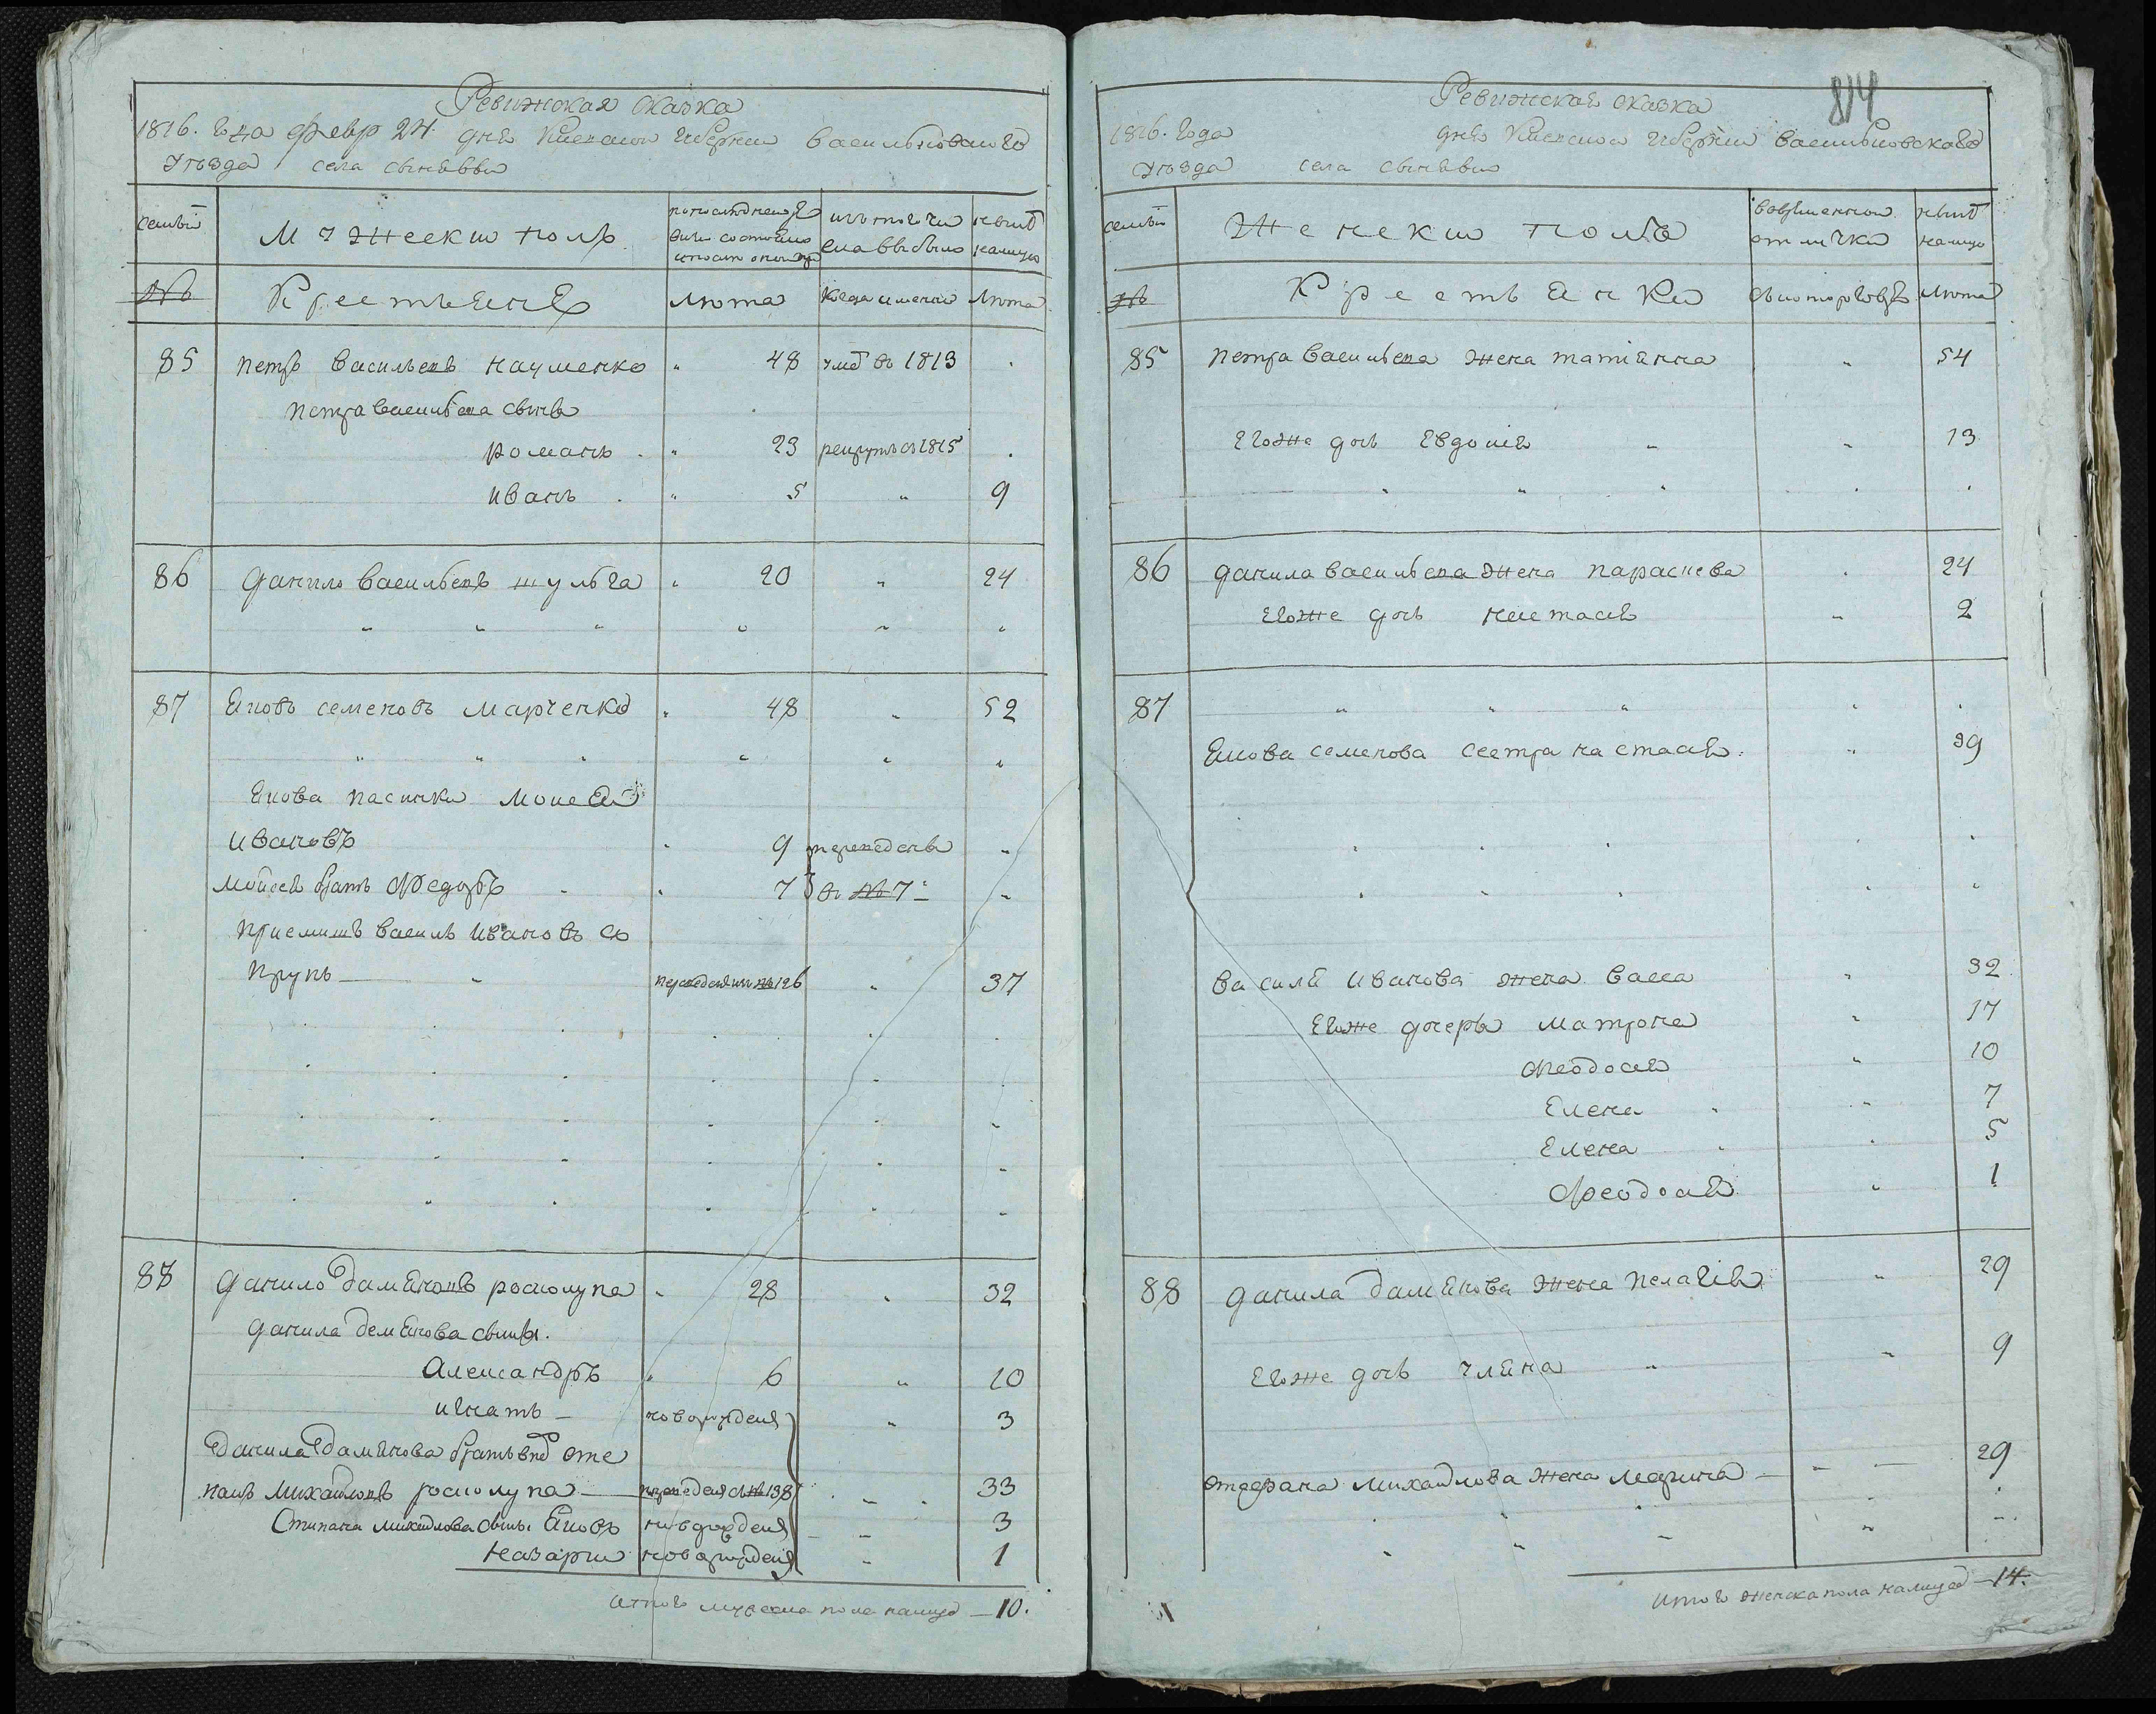 Ревижская сказка
1816. года февр 24. дня Киевской губернии васильковского
уезда села сынявы
семьи
Мужеский полъ
по последней ревизии состояло и после оной прибыло
изъ того числа выбыло
ныне на лицо
№
Крестьяне
лета
когда именно
лета
85 петръ васильевъ науменко " 48 умре въ 1813 .
петра васильева сынъ
романъ . " 23 рекрутъ въ 1815 .
иванъ . " 5 " 9
86 данило васильевъ шульга " 20 " 24
87 яковъ семеновъ марченко " 48 " 52
якова пасинки моисей
ивановъ " 9 переведены "
моисея братъ Федоръ - " 7 въ №7 "
приемишъ василь ивановъ
крукъ переведенъ изъ №126 " 37
88 данило дамяновъ росколупа " 28 " 32
данила демянова сыны.
Александръ " 6 " 10
игнатъ новорожденъ " 3
Данила Дамянова братъ сте
панъ михайловъ росколупа переведенъ съ №138 " 33
Стипана михайлова сыны Яковъ новорожденъ " 3
назарий новорожденъ " 1
итого мужеска пола налицо — 10.
814
Ревижская сказка
1816. года дня Киевской губернии васильковскаго
уезда села сынявы
семьи
Женский полъ
во временной отлучке
ныне на лицо
№
Крестьянки
съ котораго время
лета
85 петра васильева жена татиянна " 54
его же дочь Евдокия " " 13
86 данила васильева жена параскева . 24
его же дочь настасия " 2
87
якова семенова сестра настасия . " 39
василя иванова жена васса " 32
его же дочеры матрона " 17
феодосия " 10
Елена " " 7
Елена " 5
Феодосия " 1
88 данила дамянова жена пелагия " 29
его же дочь уляна " " 9
стефана михайлова жена марина — — — 29
итого женска пола налицо — 14.